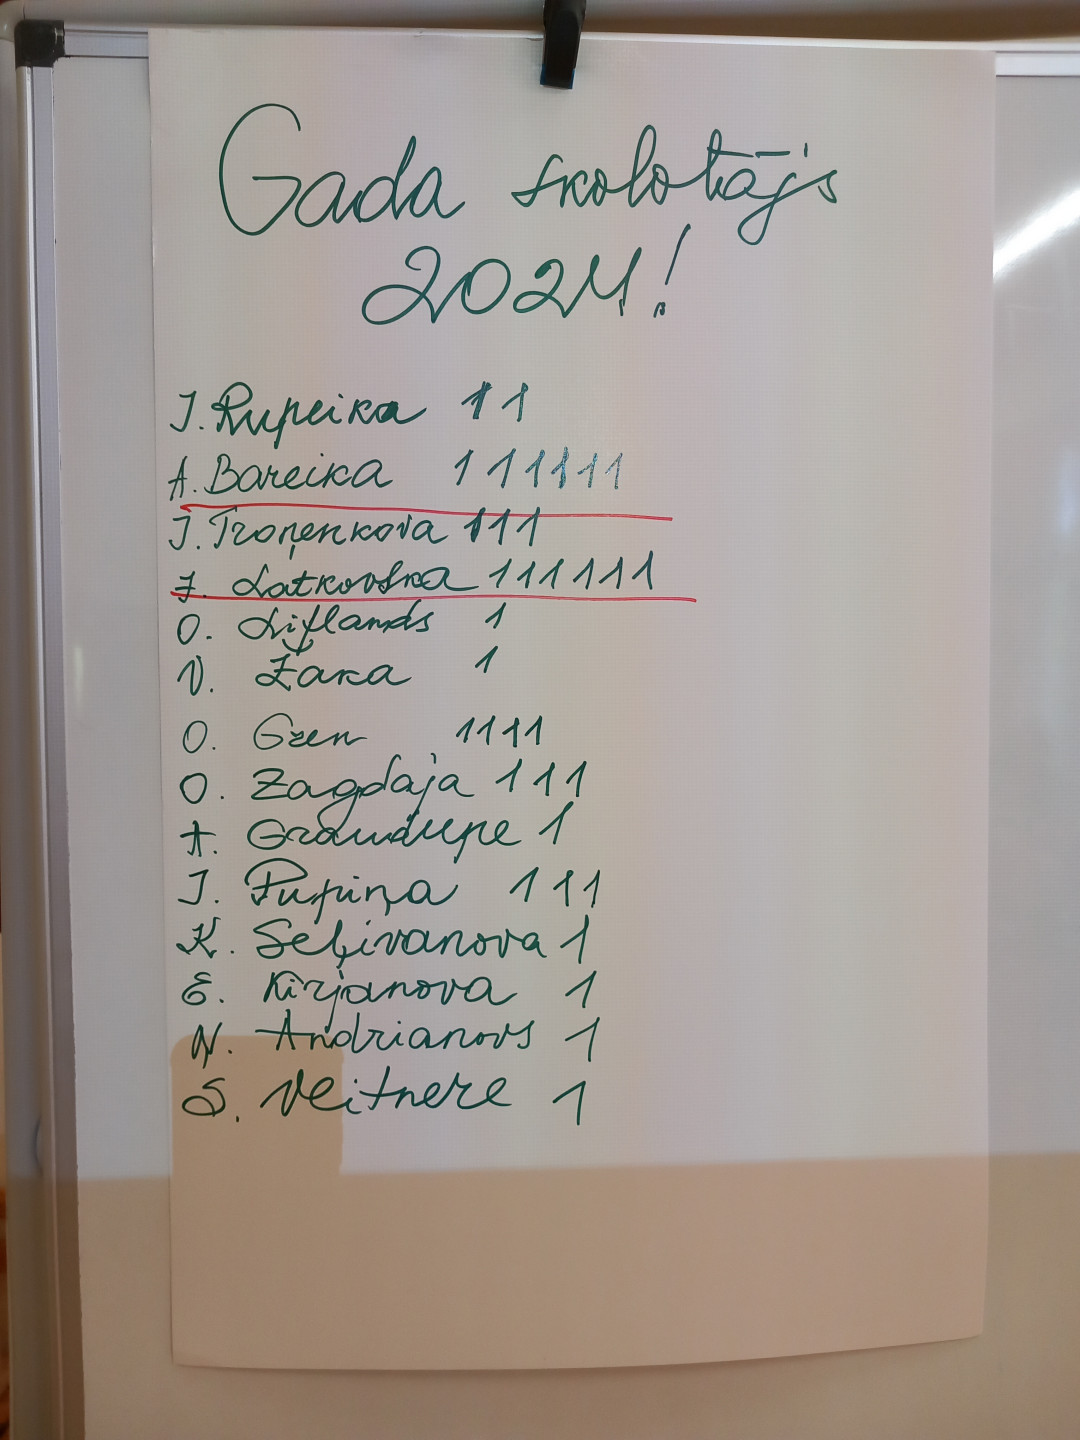 Gada skolotājs
2024!
I. Rupeika 11
A. Bareika 111111
I. Troņenkova 111
Ž. Latkovska 111111
O. Liflands 1
V. Žaka 1
O. Gren 1111
O. Zagdaja 111
A. Graudupe 1
I. Pupiņa 111
K. Seļivanova 1
E. Kirjanova 1
N. Andrianovs 1
S. Veitnere 1